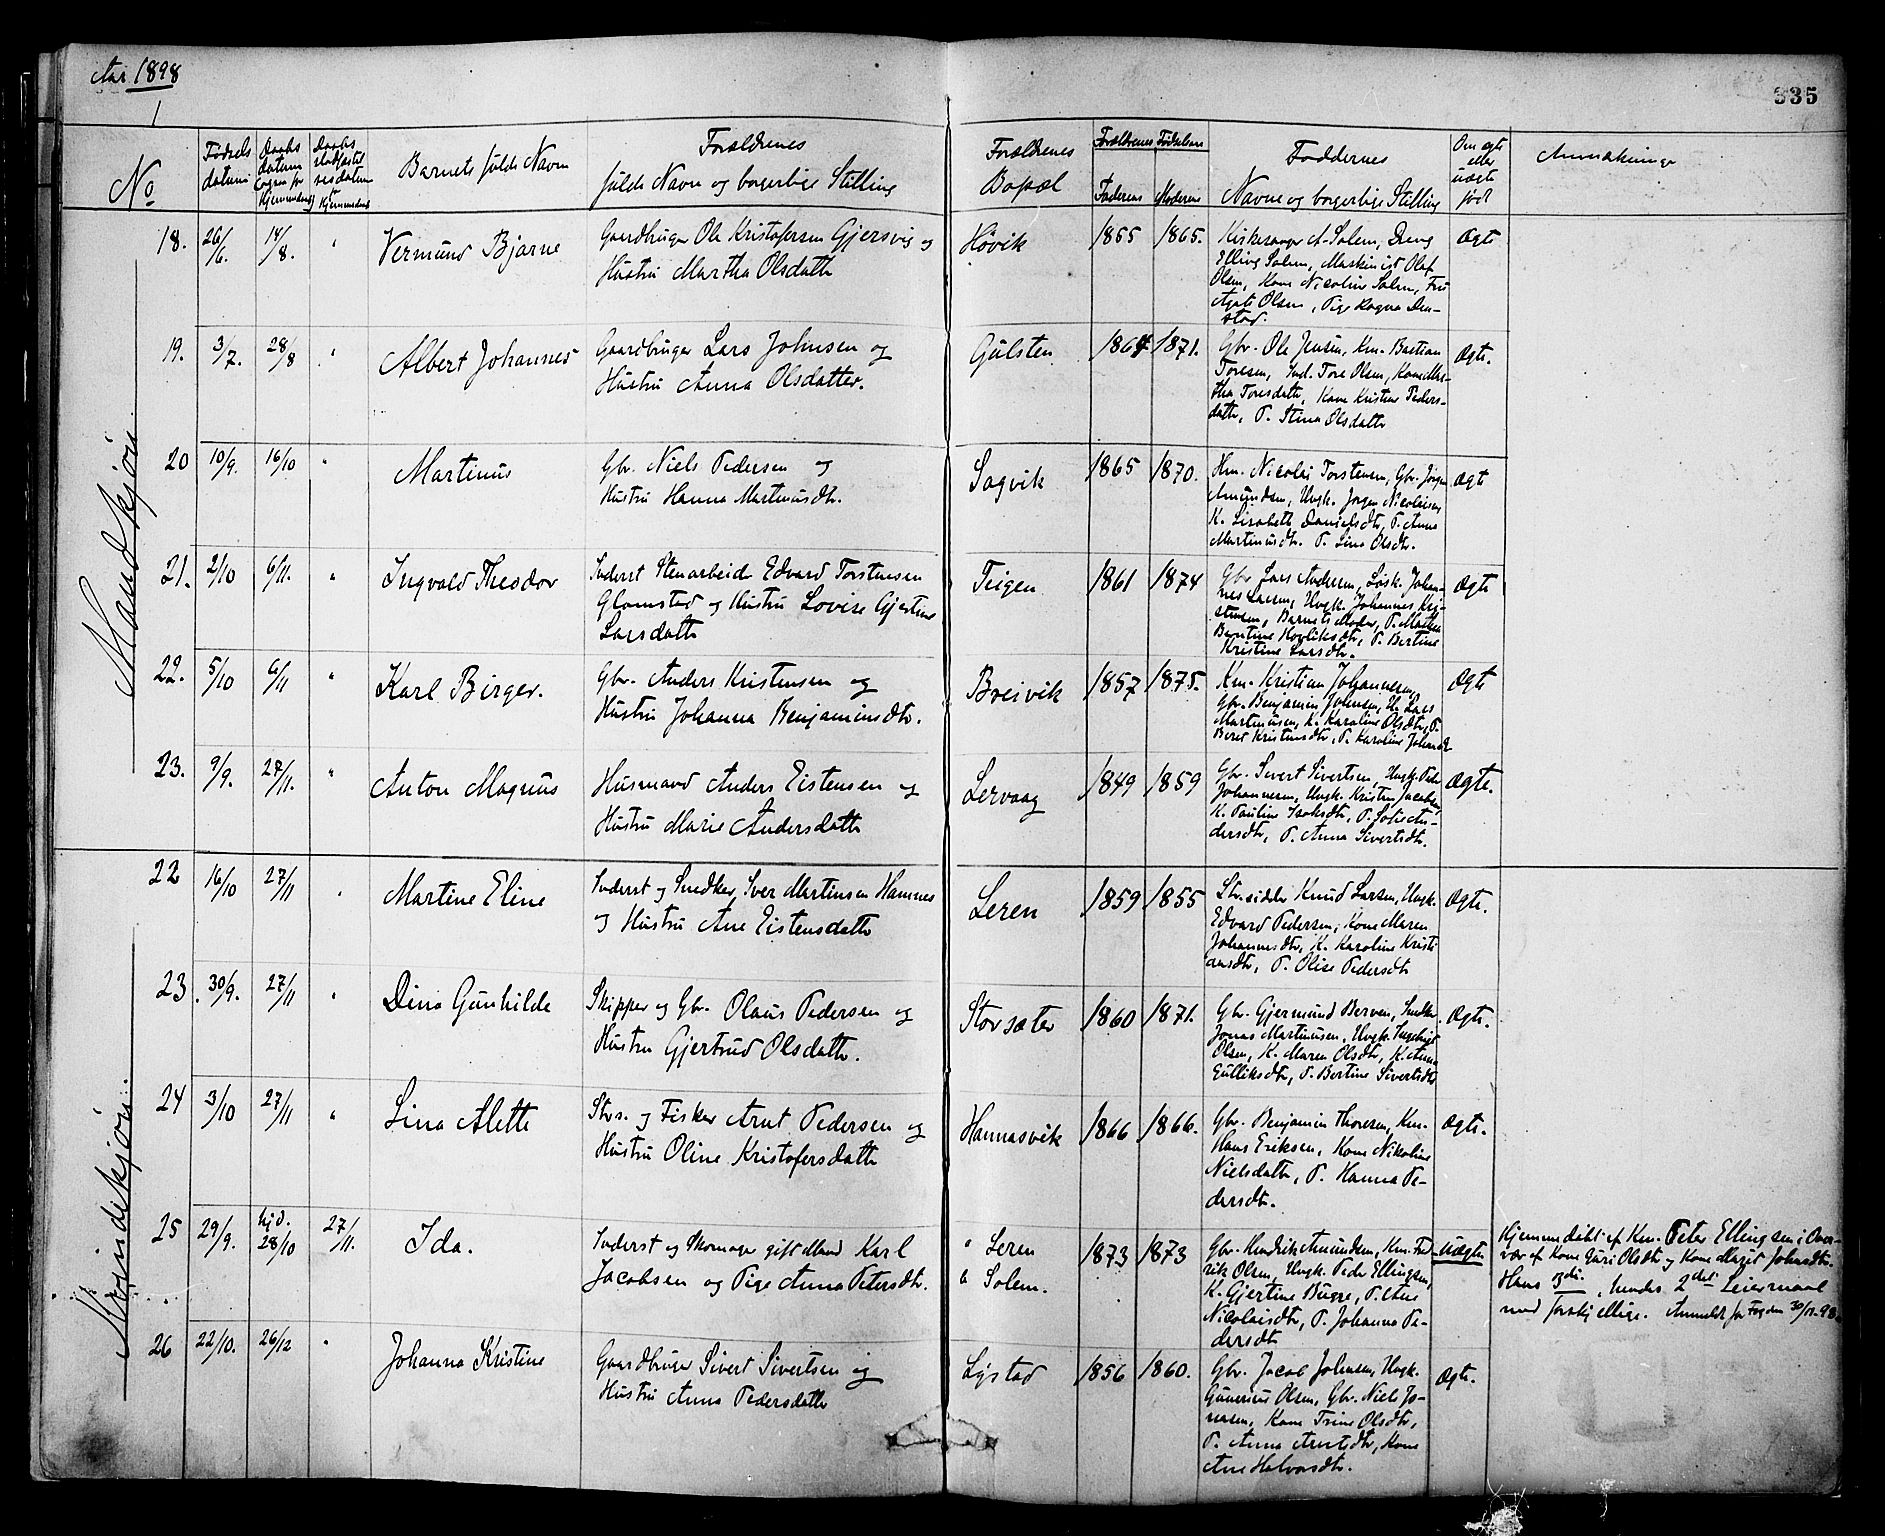 Aar 1898
335
No
Fødsels datum
Daabs datum
Barnets fulde Navn
Forældrenes
fulde Navn og borgerlige Stilling
Forældrenes
Bopæl
Forældrenes Fødselsaar
Faderens
Moderens
Faddernes
Navne og borgerlige Stilling
Om ægte
eller
uægte
født
Anmærkninger
Mandkjøn
18. 26/6. 14/8. " Vermund Bjarne
Gaardbruger Ole Kristofersen Gjersvig og
Hustru Martha Olsdatter
Høvik 1855 1865.
Kirkesanger A. Solem, Dreng
Elling Solem, Maskinist Olaf
Olsen, Kone Nicoline Solem, Fru
Agate Olsen, Pige Ragna Den-
stad.
Ægte
19. 3/7. 28/8 " Albert Johannes
Gaardbruger Lars Johnsen og
Hustru Anna Olsdatter.
Gulsten 1864 1871.
Gbr. Ole Jensen, Km. Bastian
Toresen, Ind. Tore Olsen, Kone Mar-
tha Toresdatter, Kone Kristine Peders-
datter, P. Stina Olsdatter
Ægte.
20 10/9. 16/10 " Martinus
Gbr. Niels Pedersen og
Hustru Hanna Martinusdtr.
Sagvik 1865 1870.
Hm. Nicolai Torstensen, Gbr. Jørgen
Amundsen, Ungk. Jørgen Nicolaisen
K. Lisabeth Danielsdtr, P. Anna
Martinusdtr. P. Lina Olsdtr.
Ægte
21. 2/10 6/11. " Ingvald Theodor
Inderst Stenarbeider Edvard Torstensen
Glamstad og Hustru Lovise Gjertine
Larsdatter
Teigen 1861 1874
Gbr Lars Andersen, Løsk. Johan-
nes Larsen, Ungk. Johannes Kri-
stensen, Barnets Moder, P. Marthe
P. Bertine
Kristine Larsdtr.
Ægte
22. 5/10 6/11 " Karl Birger.
Gbr. Anders Kristensen og
Hustru Johanna Benjaminsdtr.
Breivik 1857 1875.
Km. Kristian Johannesen,
Gbr. Benjamin Johnsen, U. Lars
Martinusen, K. Karoline Olsdtr, P.
Beret Kristensdtr, P. Karoline
Ægte
23. 9/9. 27/11. " Anton Magnus
Husmand Anders Eistensen og
Hustru Marie Andersdatter
Lervaag 1849 1859
Gbr. Sivert Sivertsen, Ungk. Peder
Johannesen, Ungk. Kristen Jacobsen,
K. Pauline Isaksdtr, P. Sofie An-
dersdtr, P. Anna Sivertsdtr.
Ægte.
Kvindekjøn.
22 16/10 27/11 " Martine Eline
Inderst og Snedker Iver Martinsen Hamnes
og Hustru Ane Eistensdatter
Leren 1859 1855
Strsidder Knud Larsen, Ungk.
Edvard Pedersen, Kone Maren
Johannesdtr, K. Karoline Kristi
ansdtr, P. Olise Pedersdtr
Ægte.
23 30/9. 27/11 " Dina Gunhilde
Skipper og Gbr. Olaus Pedersen og
Hustru Gjertrud Olsdatter.
Storsæter 1860 1871.
Gbr. Gjermund Berven, Snedker
Jonas Martinusen, Ungk. Ingebrigt
Olsen, K. Maren Olsdtr, K. Anna
Gulliksdtr, P. Bertine Sivertsdtr
Ægte.
24 3/10 27/11 " Lina Alette
Strs. og Fisker Arnt Pedersen og
Hustru Oline Kristofersdatter
Hamnasvik 1866 1866.
Gbr. Benjamin Thoresen, Km.
Hans Eriksen, Kone Nikoline
Nielsdatter, P. Hanna Pe-
dersdtr.
Ægte.
25 29/9. hjd. 28/10 27/11. Ida.
Inderst og Skomager gift Mand Karl
Jacobsen og Pige Anna Petersdtr.
" Leren
" Solem.
1873 1873
Gbr. Hendrik Amundsen, Km. Fred-
rik Olsen, Ungk. Peder Ellingsen,
K. Gjertine Bugge, P. Ane
Nicolaisdtr, P. Johanna Pe-
dersdtr
Uægte
Hjemmedøbt af Km. Peter Ellingsen i Over-
vær af Kone Guri Olsdtr og Kone Magit Johnsdtr.
Hans , hendes 2det Leiermaal
med forskjellige. Anmeldt for Fogden 30/11-98.
26 22/10. 26/12 " Johanna Kristine
Gaardbruger Sivert Sivertsen og
Hustru Anna Pedersdatter
Lystad 1856 1860.
Gbr. Jacob Johnsen, Ungk.
Gunerius Olsen, Gbr. Niels Jo-
nasen, Kone Trine Olsdtr,
P. Anna Arntsdtr, Kone
Ane Halvorsdtr.
Ægte.